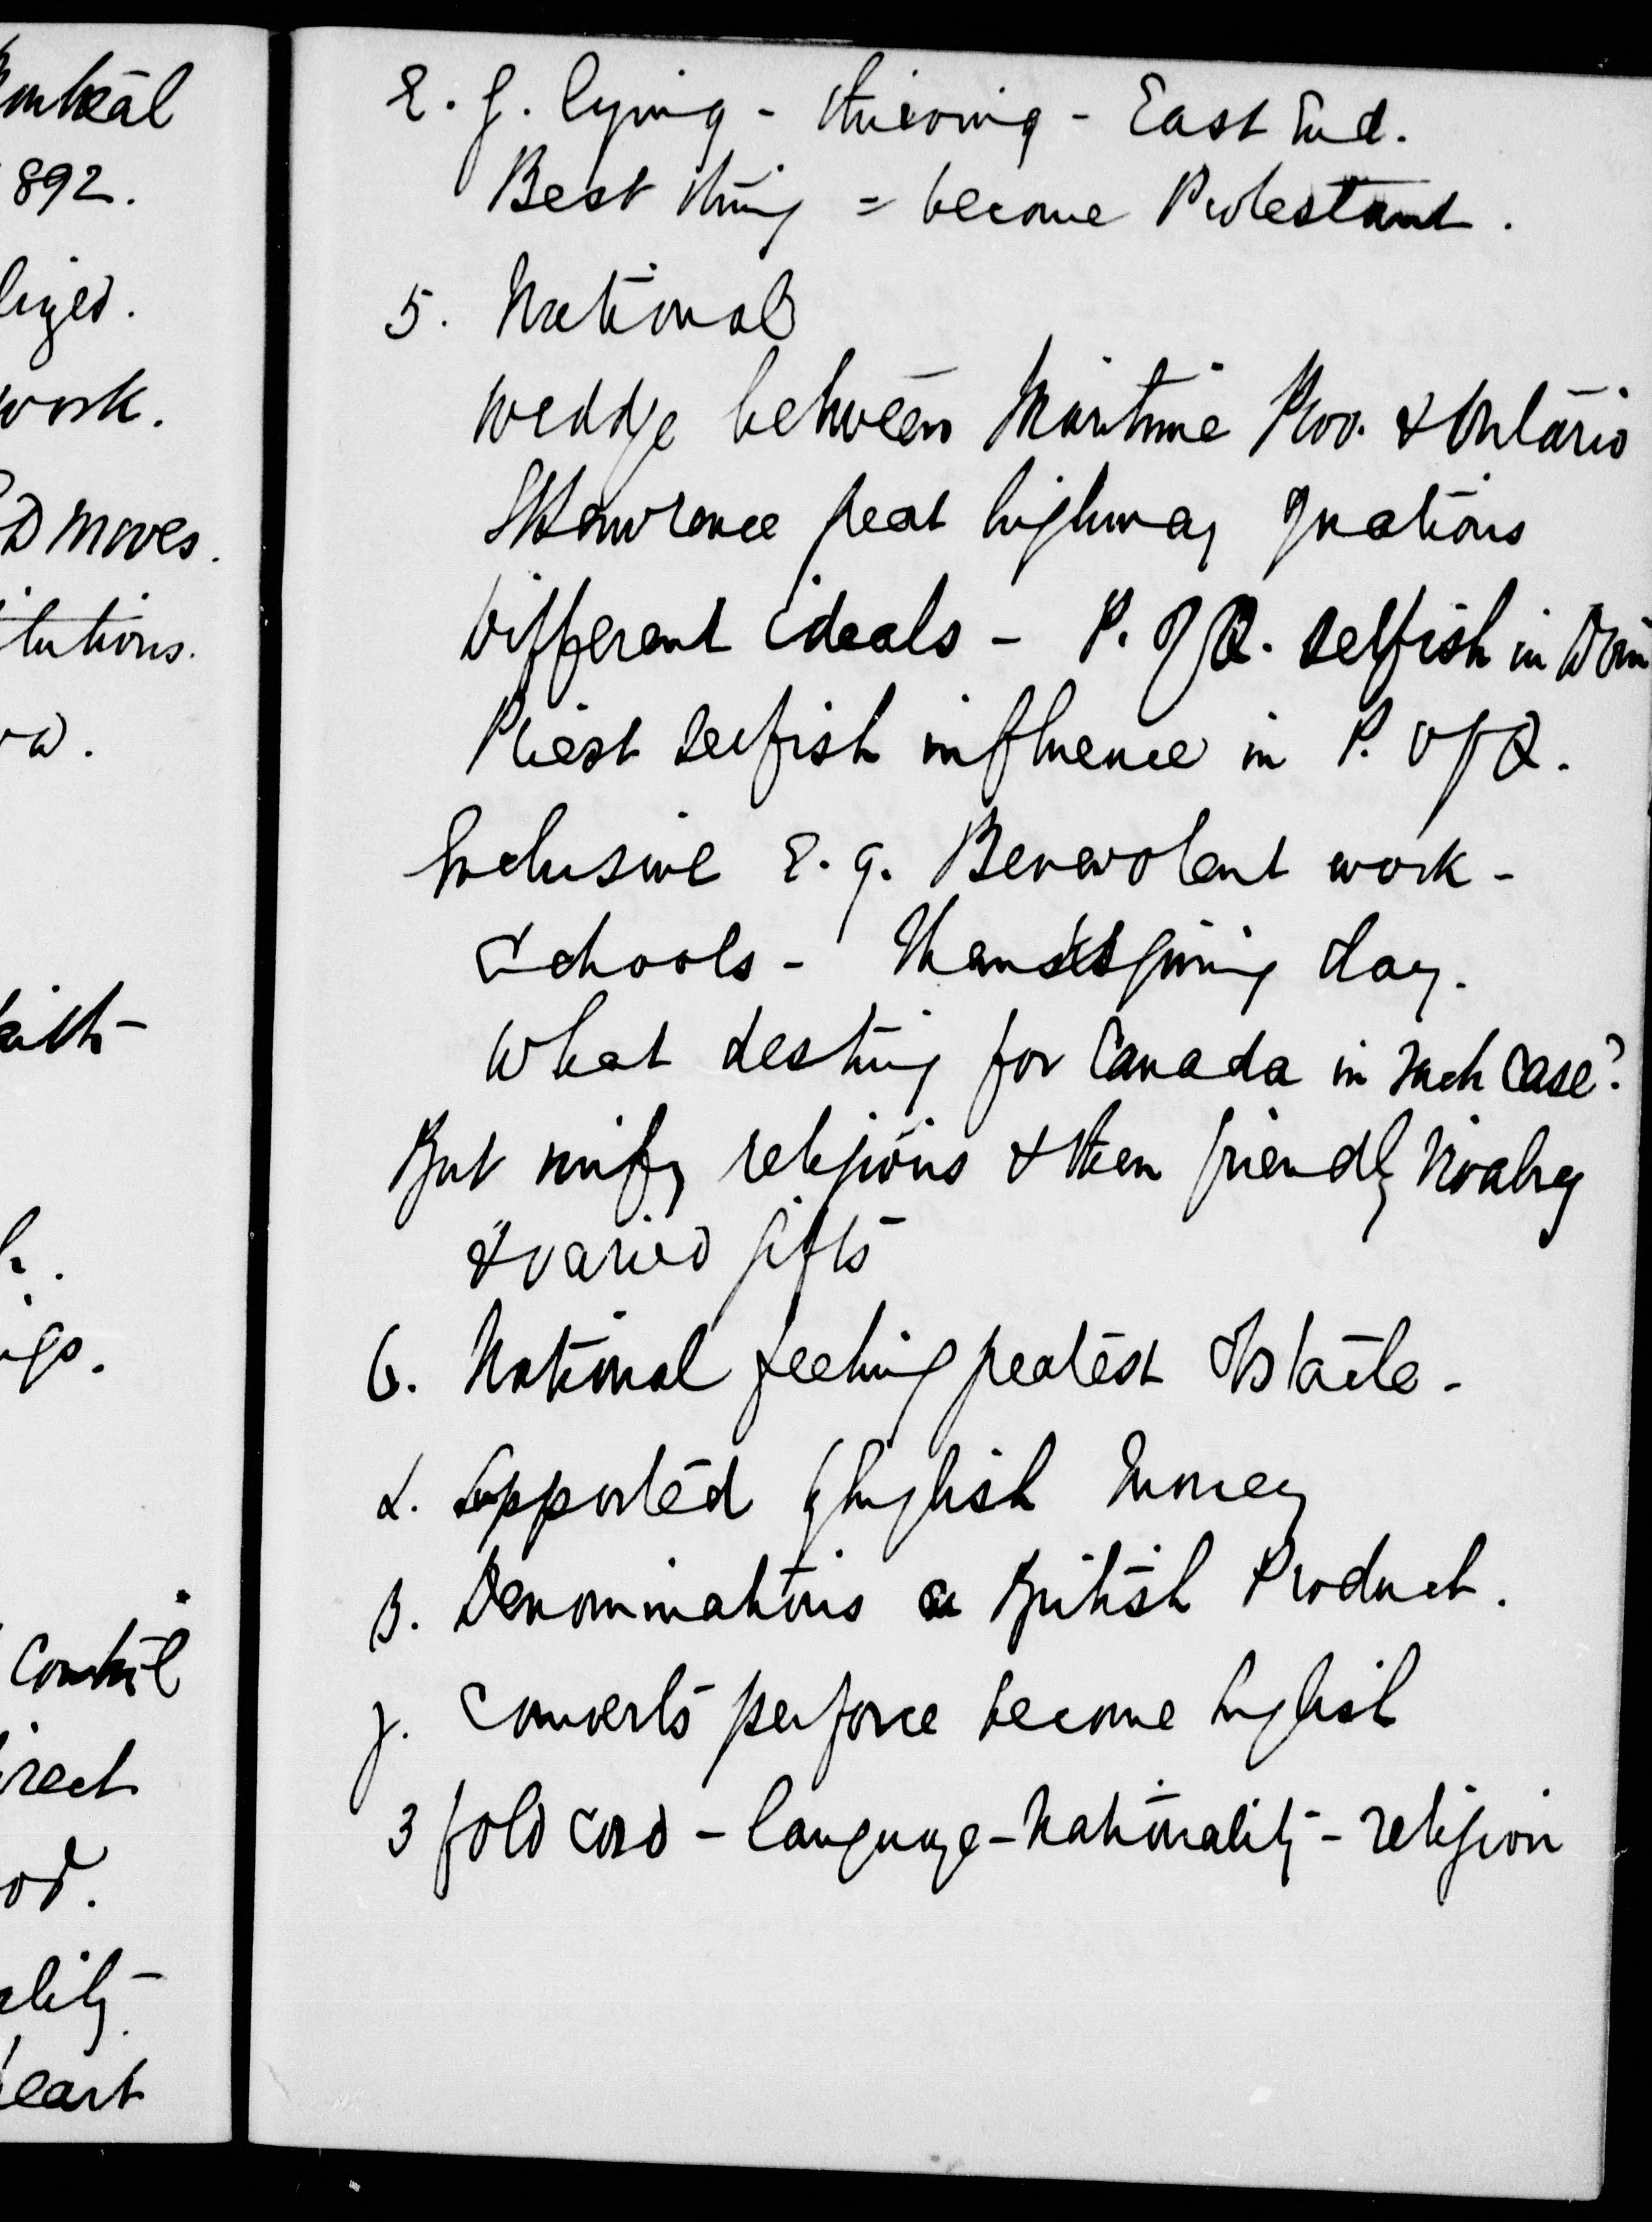 ontreal
1892.
lized.
work.
D moves.
titutions.
aith -
igs.
Control
irect
od.
ality -
heart
E.g. lying - thieving - East End.
Best thing = become Protestant.
5. National
Wedge between Maritime Prov. & Ontario
St Lawrence great highway of nations
Different ideals - P. of Q. selfish in Dom
Priest selfish influence in P. of Q.
Exclusive E.g. Benevolent work -
Schools - Thanksgiving day.
What destiny for Canada in such case?
But unify religions & then friendly rivalry
& varied gifts
6. National feeling greatest obstacle -
α. Supported by English money
β. Denominations a British Product.
γ. Converts perforce become English
3 fold cord - language - nationality - religion